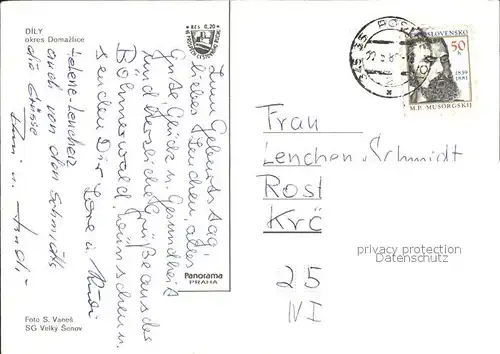 DÍLY
okres Domažlice
Kčs 0,20
Zum Geburtstag,
liebes Lenchen, alles
Gute, Glück u. Gesundheit
und herzliche Grüße aus des
Böhmerwald
senden Dir Lore u. Rudi
auch von den Schmidts
die Grüsse
Foto S. Vaneš
SG Velký Šenov
Panorama
PRAHA
ČESKOSLOVENSKO
50
h
1839
1881
M. P. MUSORGSKIJ
Frau
Lenchen Schmidt
Rost
Krö
25
NI
privacy protection
Datenschutz